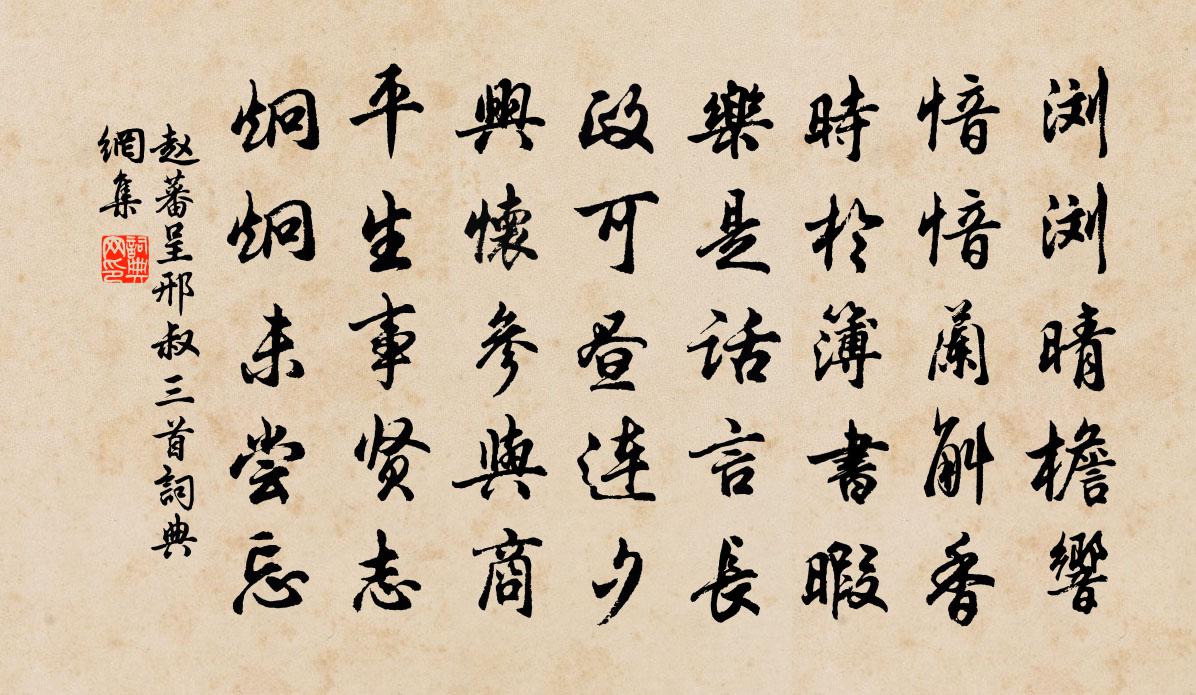 浏浏晴檐響
愔愔蘭斛香
時於簿書暇
樂是话言長
政可昼连夕
興懷参與商
平生事贤志
炯炯未尝忘
赵蕃呈邢叔三首詞典
網集
詞典网印